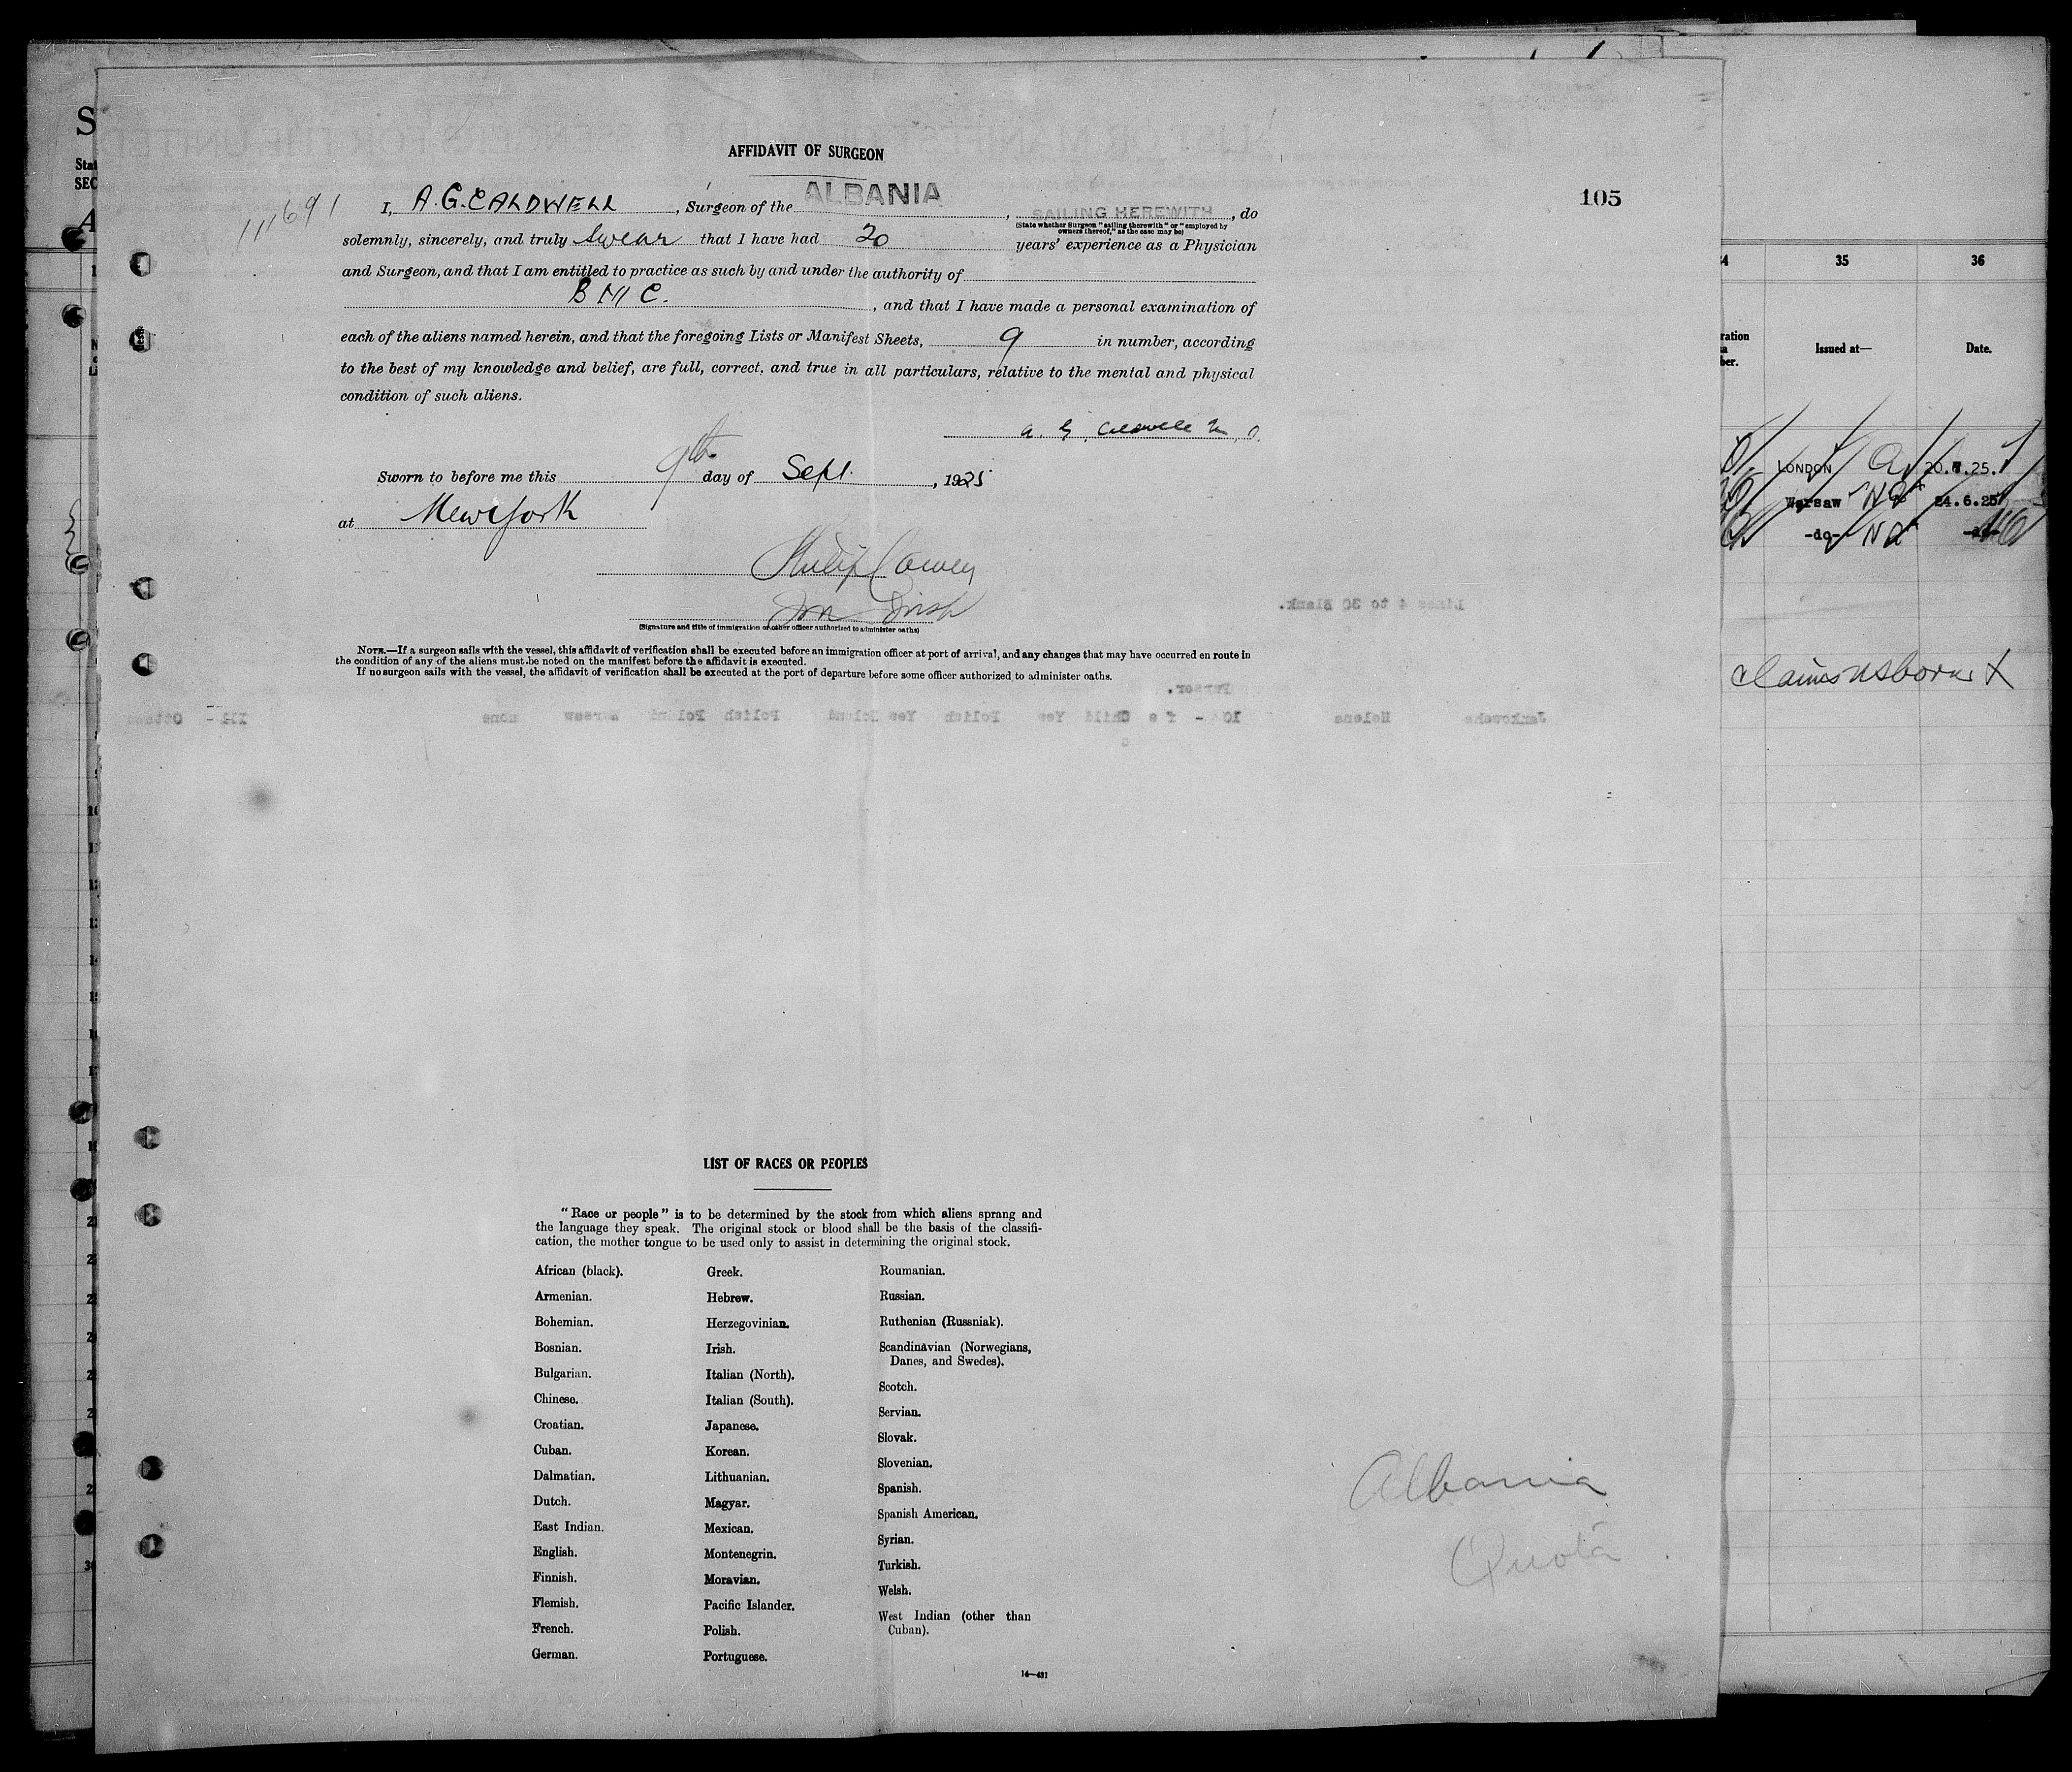 AFFIDAVIT OF SURGEON
105
111691
I, A.G. CALDWELL, Surgeon of the ALBANIA, SAILING HEREWITH, do
(State whether Surgeon "sailing therewith" or "employed by
owners thereof," as the case may be)
solemnly, sincerely, and truly swear that I have had 20 years' experience as a Physician
and Surgeon, and that I am entitled to practice as such by and under the authority of
B M C., and that I have made a personal examination of
each of the aliens named herein, and that the foregoing Lists or Manifest Sheets, 9 in number, according
to the best of my knowledge and belief, are full, correct, and true in all particulars, relative to the mental and physical
condition of such aliens.
A. G. Caldwell M.D.
Sworn to before me this 9th day of Sept., 1925
at New York
Philip Cowen
(Signature and title of immigration or other officer authorized to administer oaths)
NOTE.—If a surgeon sails with the vessel, this affidavit of verification shall be executed before an immigration officer at port of arrival, and any changes that may have occurred en route in
the condition of any of the aliens must be noted on the manifest before the affidavit is executed.
If no surgeon sails with the vessel, the affidavit of verification shall be executed at the port of departure before some officer authorized to administer oaths.
LIST OF RACES OR PEOPLES
"Race or people" is to be determined by the stock from which aliens sprang and
the language they speak. The original stock or blood shall be the basis of the classifi-
cation, the mother tongue to be used only to assist in determining the original stock.
African (black).
Armenian.
Bohemian.
Bosnian.
Bulgarian.
Chinese.
Croatian.
Cuban.
Dalmatian.
Dutch.
East Indian.
English.
Finnish.
Flemish.
French.
German.
Greek.
Hebrew.
Herzegovinian.
Irish.
Italian (North).
Italian (South).
Japanese.
Korean.
Lithuanian.
Magyar.
Mexican.
Montenegrin.
Moravian.
Pacific Islander.
Polish.
Portuguese.
Roumanian.
Russian.
Ruthenian (Russniak).
Scandinavian (Norwegians,
Danes, and Swedes).
Scotch.
Servian.
Slovak.
Slovenian.
Spanish.
Spanish American.
Syrian.
Turkish.
Welsh.
West Indian (other than
Cuban).
14—431
Albania
Quota
35 36
Issued at— Date.
LONDON 20.7.25.
Warsaw 24.6.25
-do- -do-
Claims US born X
Lines 4 to 30 Blank.